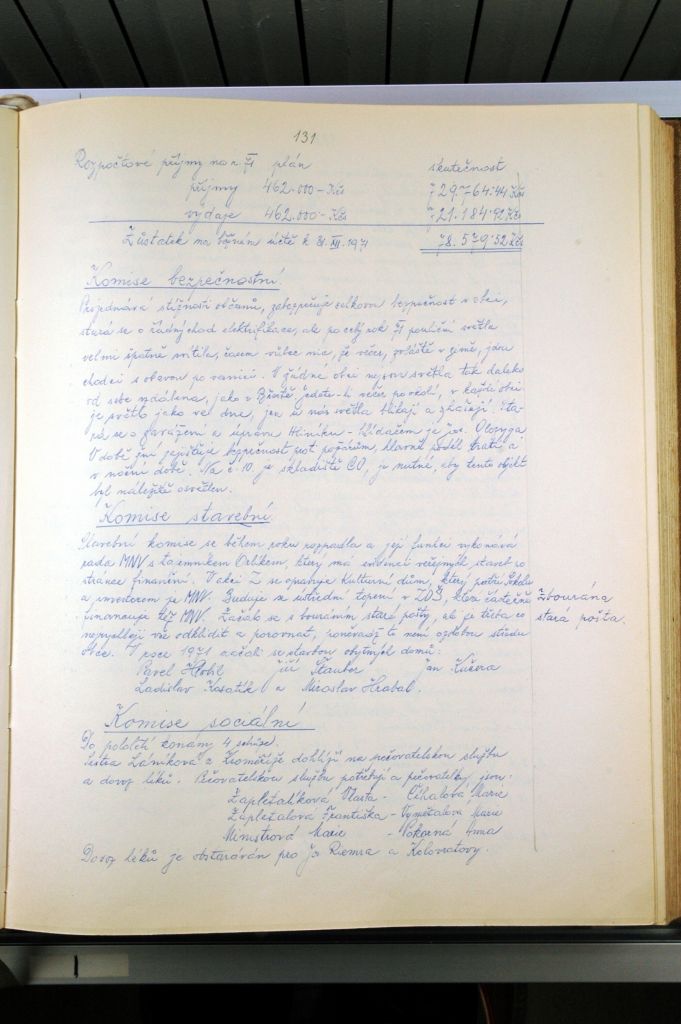 131
Rozpočtové příjmy na r. 71 plán skutečnost
příjmy 462.000 - Kčs 729.764.44 Kčs
výdaje 462.000 - Kčs 721.184.92 Kčs
Zůstatek na běžném účtě k 31. XII. 1971 78.579.52 Kčs
Komise bezpečnostní.
Projednává stížnosti občanů, zabezpečuje celkovou bezpečnost v obci,
stará se o řádný chod elektrifikace, ale po celý rok 71 pouliční světla
velmi špatně svítila, časem vůbec nic, že večer, zvláště v zimě, jsou
chodci s obavou po vesnici. V žádné obci nejsou světla tak daleko
od sebe vzdálena, jako v Břestě. Jedete-li večer po okolí, v každé obci
je světlo jako ve dne, jen u nás světla blikají a zhasínají. Sta-
rá se o zavážení a úpravu Hliníku - hlídačem je Jos. Olejyga
V době žní zajišťuje bezpečnost proti požárům, hlavně podél trati a
v noční době. Na č. 10. je skladiště CO, je nutné, aby tento objekt
byl náležitě osvětlen.
Komise stavební.
Stavební komise se během roku rozpadla a její funkci vykonává
rada MNV s tajemníkem Orlíkem, který má evidenci veřejných staveb po
stránce finanční. V akci Z se opravuje Kulturní dům, který patří Sokolu
a investorem je MNV. Buduje se ústřední topení v ZDŠ, které částečně
financuje též MNV. Začalo se s bouráním staré pošty, ale je třeba co
nejrychleji vše odklidit a porovnat, poněvadž to není ozdobou středu
obce. V roce 1971 začali se stavbou obytných domů:
Zbouraná
stará pošta.
Pavel Hrabil Jiří Stauber Jan Kučera
Ladislav Kosatík a Miroslav Hrabal.
Komise sociální
Do pololetí konány 4 schůze.
Sestra Lániková z Kroměříže dohlíží na pečovatelskou službu
a dovoz léků. Pečovatelskou službu potřebují a pečovatelky jsou:
Zapletalíková Vlasta - Cihalová Marie
Zapletalová Františka - Vymětalová Marie
Ministrová Marie - Pokorná Anna
Dovoz léků je obstaráván pro Jos. Riemra a Kolovratovy.